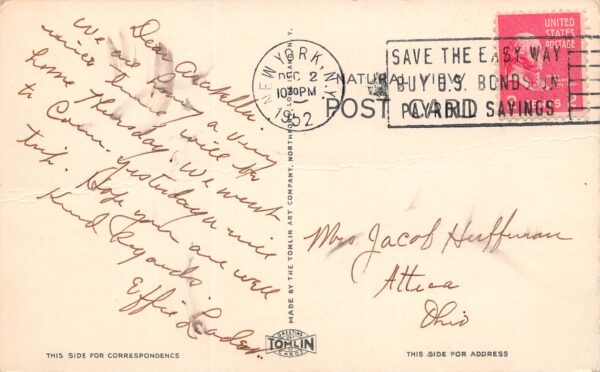 Dear
We are having a very
nice time will be
home Thursday. We went
to Conn. yesterday a nice
trip. Hope you are well
Kind Regards
Effie
NEW YORK, N.Y.
DEC 2
10:30 PM
1952
NATURAL VIEWS
POST CARD
SAVE THE EASY WAY
BUY U.S. BONDS ON
PAYROLL SAVINGS
UNITED
STATES
POSTAGE
MADE BY THE TOMLIN ART COMPANY, NORTHPORT, LONG ISLAND, N.Y.
Mrs Jacob Huffman
Attica
Ohio
GREETING
TOMLIN
CARDS
THIS SIDE FOR CORRESPONDENCE
THIS SIDE FOR ADDRESS